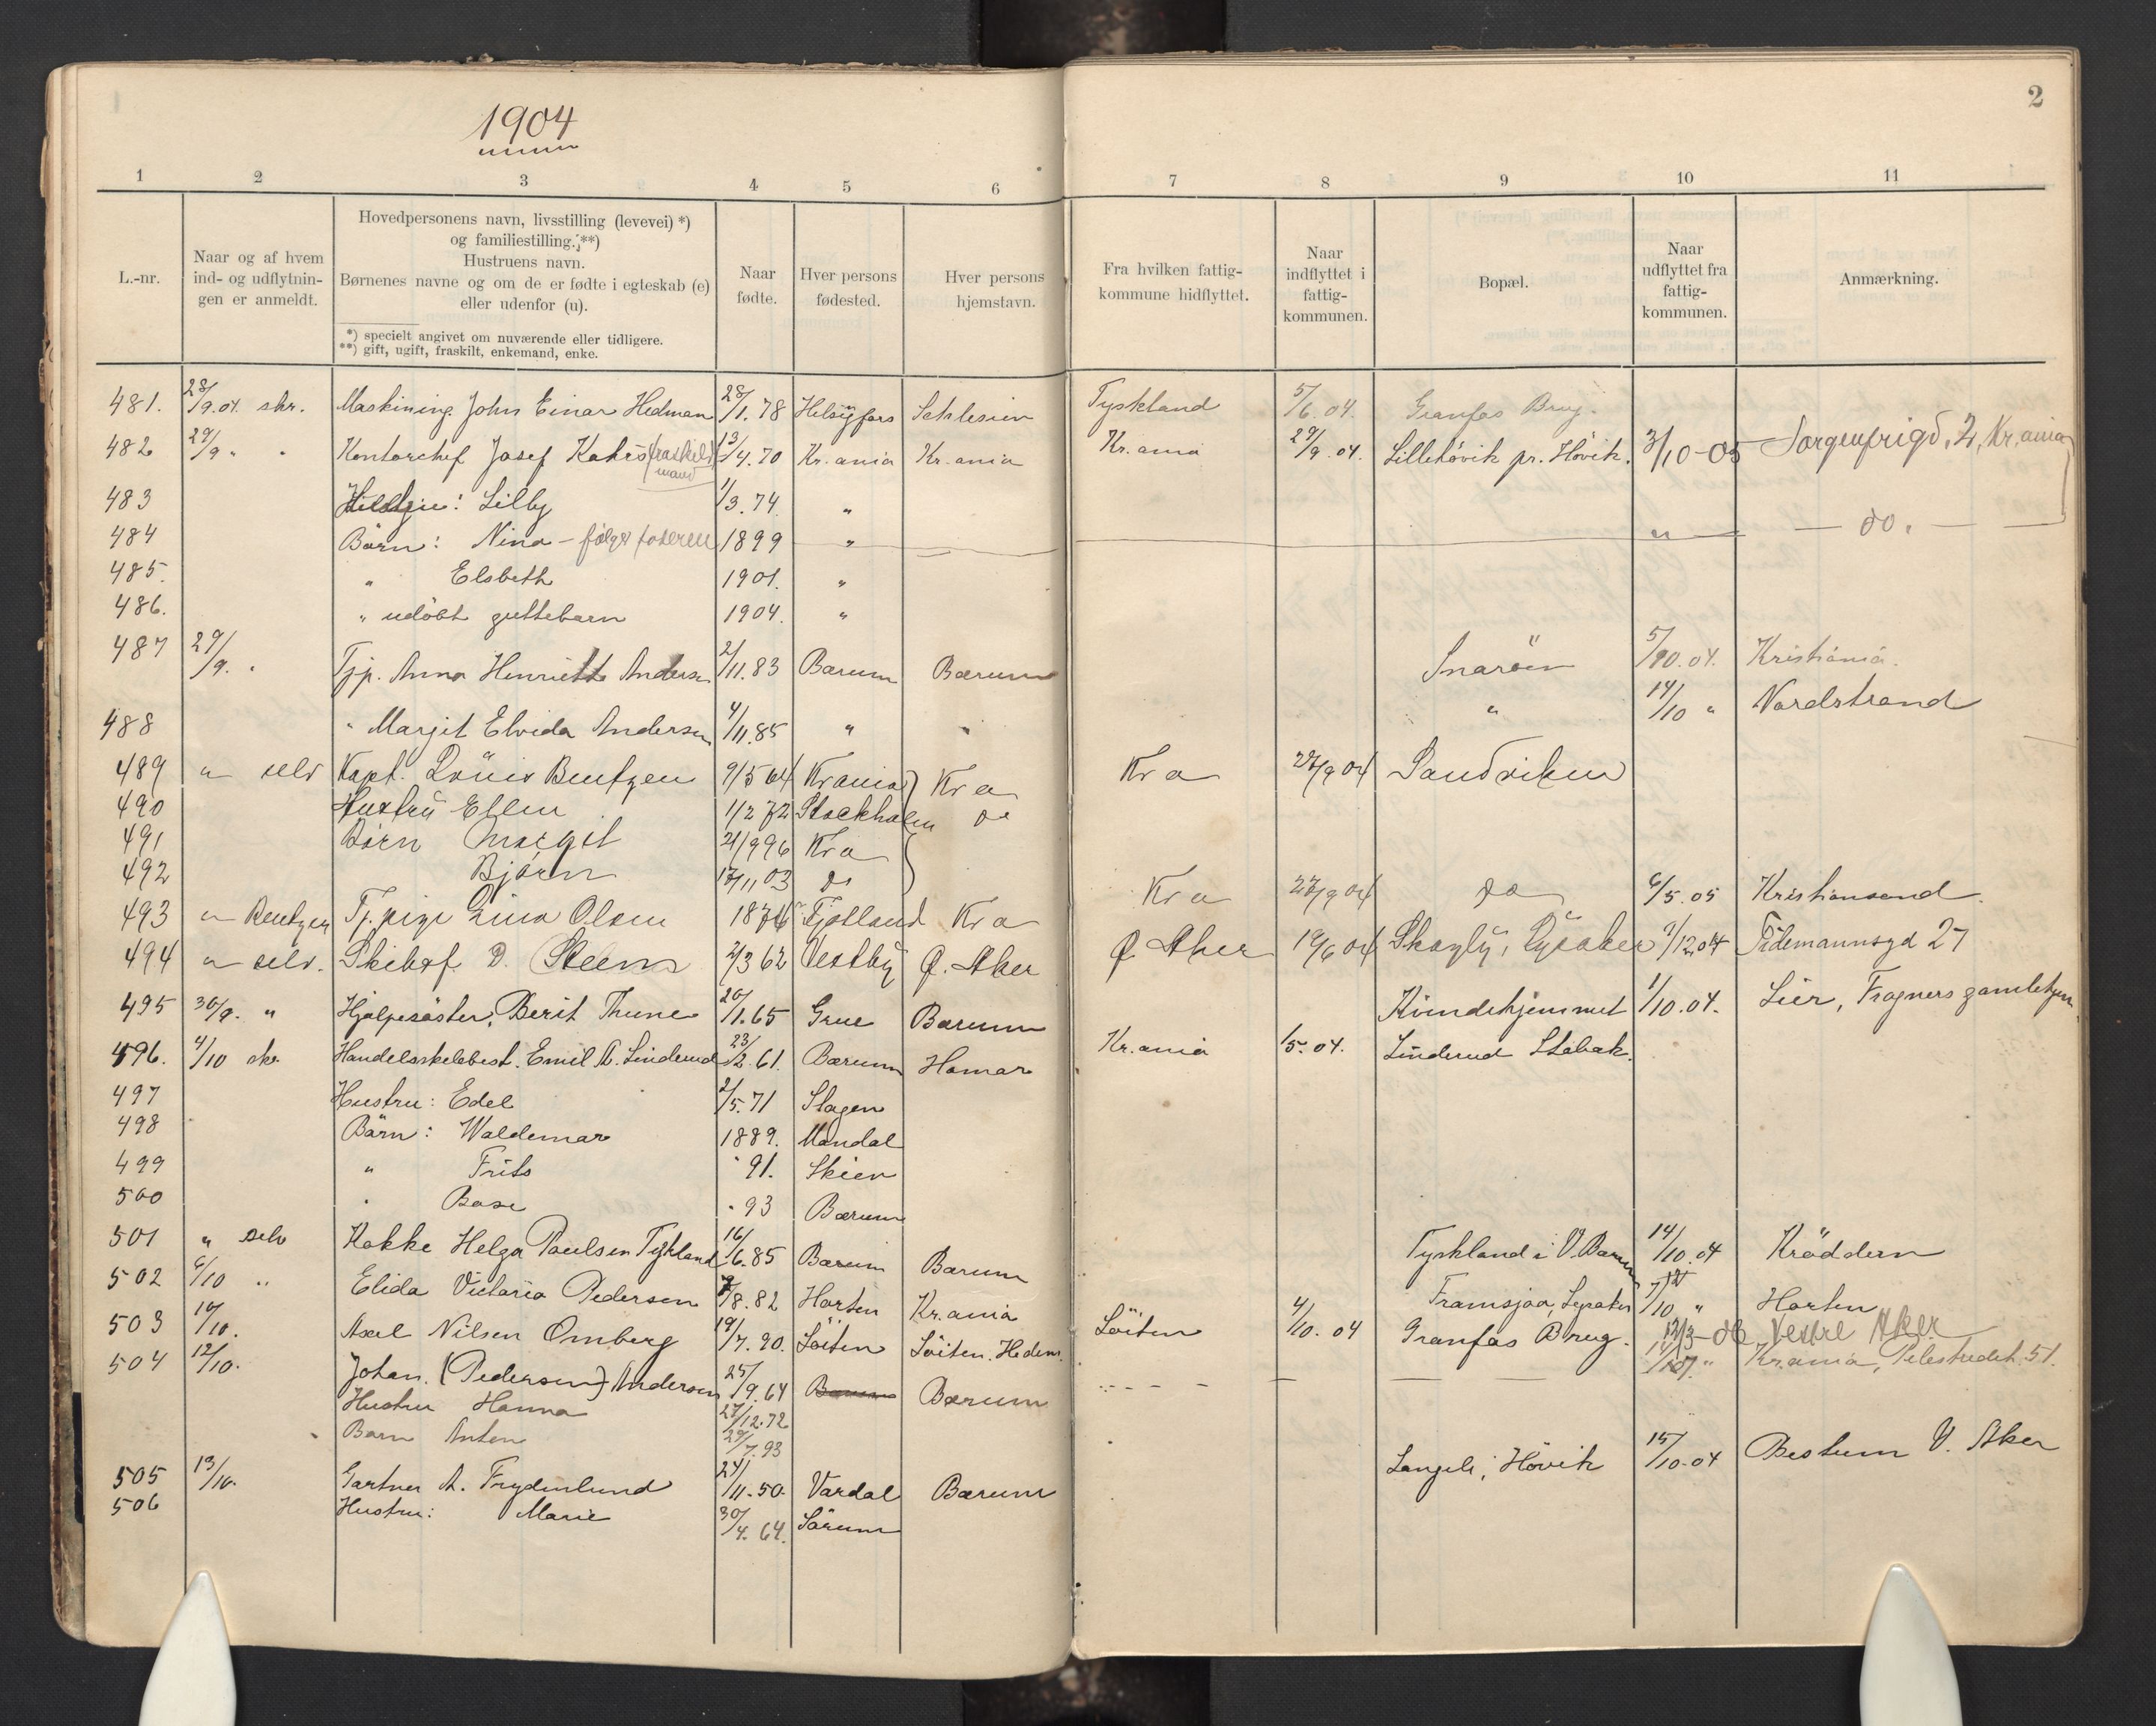 1904
2
1 2 3 4 5 6 7 8 9 10 11
L.-nr.
Naar og af hvem
ind- og udflytnin-
gen er anmeldt.
Hovedpersonens navn, livsstilling (levevei) *)
og familiestilling. **)
Hustruens navn.
Børnenes navne og om de er fødte i egteskab (e)
eller udenfor (u).
*) specielt angivet om nuværende eller tidligere.
**) gift, ugift, fraskilt, enkemand, enke.
Naar
fødte.
Hver persons
fødested.
Hver persons
hjemstavn.
Fra hvilken fattig-
kommune hidflyttet.
Naar
indflyttet i
fattig-
kommunen.
Bopæl.
Naar
udflyttet fra
fattig-
kommunen.
Anmærkning.
481. 28/9.04. skr. Maskining. John Einar Hedman 28/1.78 Helsigfors Schlesien Tyskland 5/6.04. Granfos Brug.
482 29/9 " " Kontorchef Josef (fraskilt mand) 13/4.70 Kr.ania Kr.ania Kr.ania 29/9.04. Lillehövik pr. Hövik. 3/10-05 Sorgenfrigd. 2, Kr.ania
483 Lilly 1/3.74 "
484 Börn: Nina - følger faderen 1899 " " do.
485. " Elsbeth 1901. "
486. " udöbt guttebarn 1904. "
487 29/9. " Tjp. Anna Henriette Andersen 2/11.83 Bærum Bærum Snaröen 5/10.04. Kristiania.
488 " Margit Elvida Andersen 4/11.85 " " " 14/10 " Nordstrand
489 " selv Kapt. Louis Bentzen 9/5 64 Krania Kra Kra 27/9 04 Sandviken
490 Hustru Ellen 1/2 72 Stockholm do
491 Børn Margit 21/9 96 Kra
492 Bjørn 17/11 03 do
493 " Bentzen Tj.pige Lina Olsen 1876 Fjotland Kra Kra 27/9 04 do 6/5.05 Kristiansand.
494 " selv. Skibsf. D. Steen 2/3 62 Vestby Ø. Aker Ø. Aker 19/6 04 Skogly, Lysaker 1/12 04 Tidemannsgd 27
495 30/9. " Hjælpesöster, Berit Thune 20/1.65 Grue Bærum Kvindehjemmet 1/10.04. Lier, Frogners gamlehjem
496. 4/10 skr Handelsskolebest. Emil A. Linderud 23/2.61. Bærum Hamar Kr.ania 1/5.04. Linderud Stabæk.
497 Hustru: Edel 2/5.71 Slagen
498 Börn: Waldemar 1889. Mandal
499 " Frits " 91. Skien
500 " Base " 93 Bærum
501 " selv Kokke Helga Paulsen Tyskland 16/6.85 Bærum Bærum Tyskland i V. Bærum 14/10.04 Kröddern
502 6/10 " Elida Victoria Pedersen 7/8.82 Horten Kr.ania Framsjaa, Lysaker 7/10 " Horten
503 10/10. Axel Nilsen Omberg 19/7.90. Löiten Löiten. Hedem. Löiten 4/10.04 Granfos Brug. 12/3-06 Vestre Aker
504 12/10. Johan. (Pedersen) Andersen 25/9.64 Bærum Bærum - - - - " Kr.ania, Pilestrædet 51.
Hustru Hanna 27/12.72
Barn Anton 29/7.93
505 13/10. Gartner A. Frydenlund 24/11.50. Vardal Bærum Hövik 15/10.04 Bestum V. Aker
506 Hustru: Marie 30/4.64. Sörum